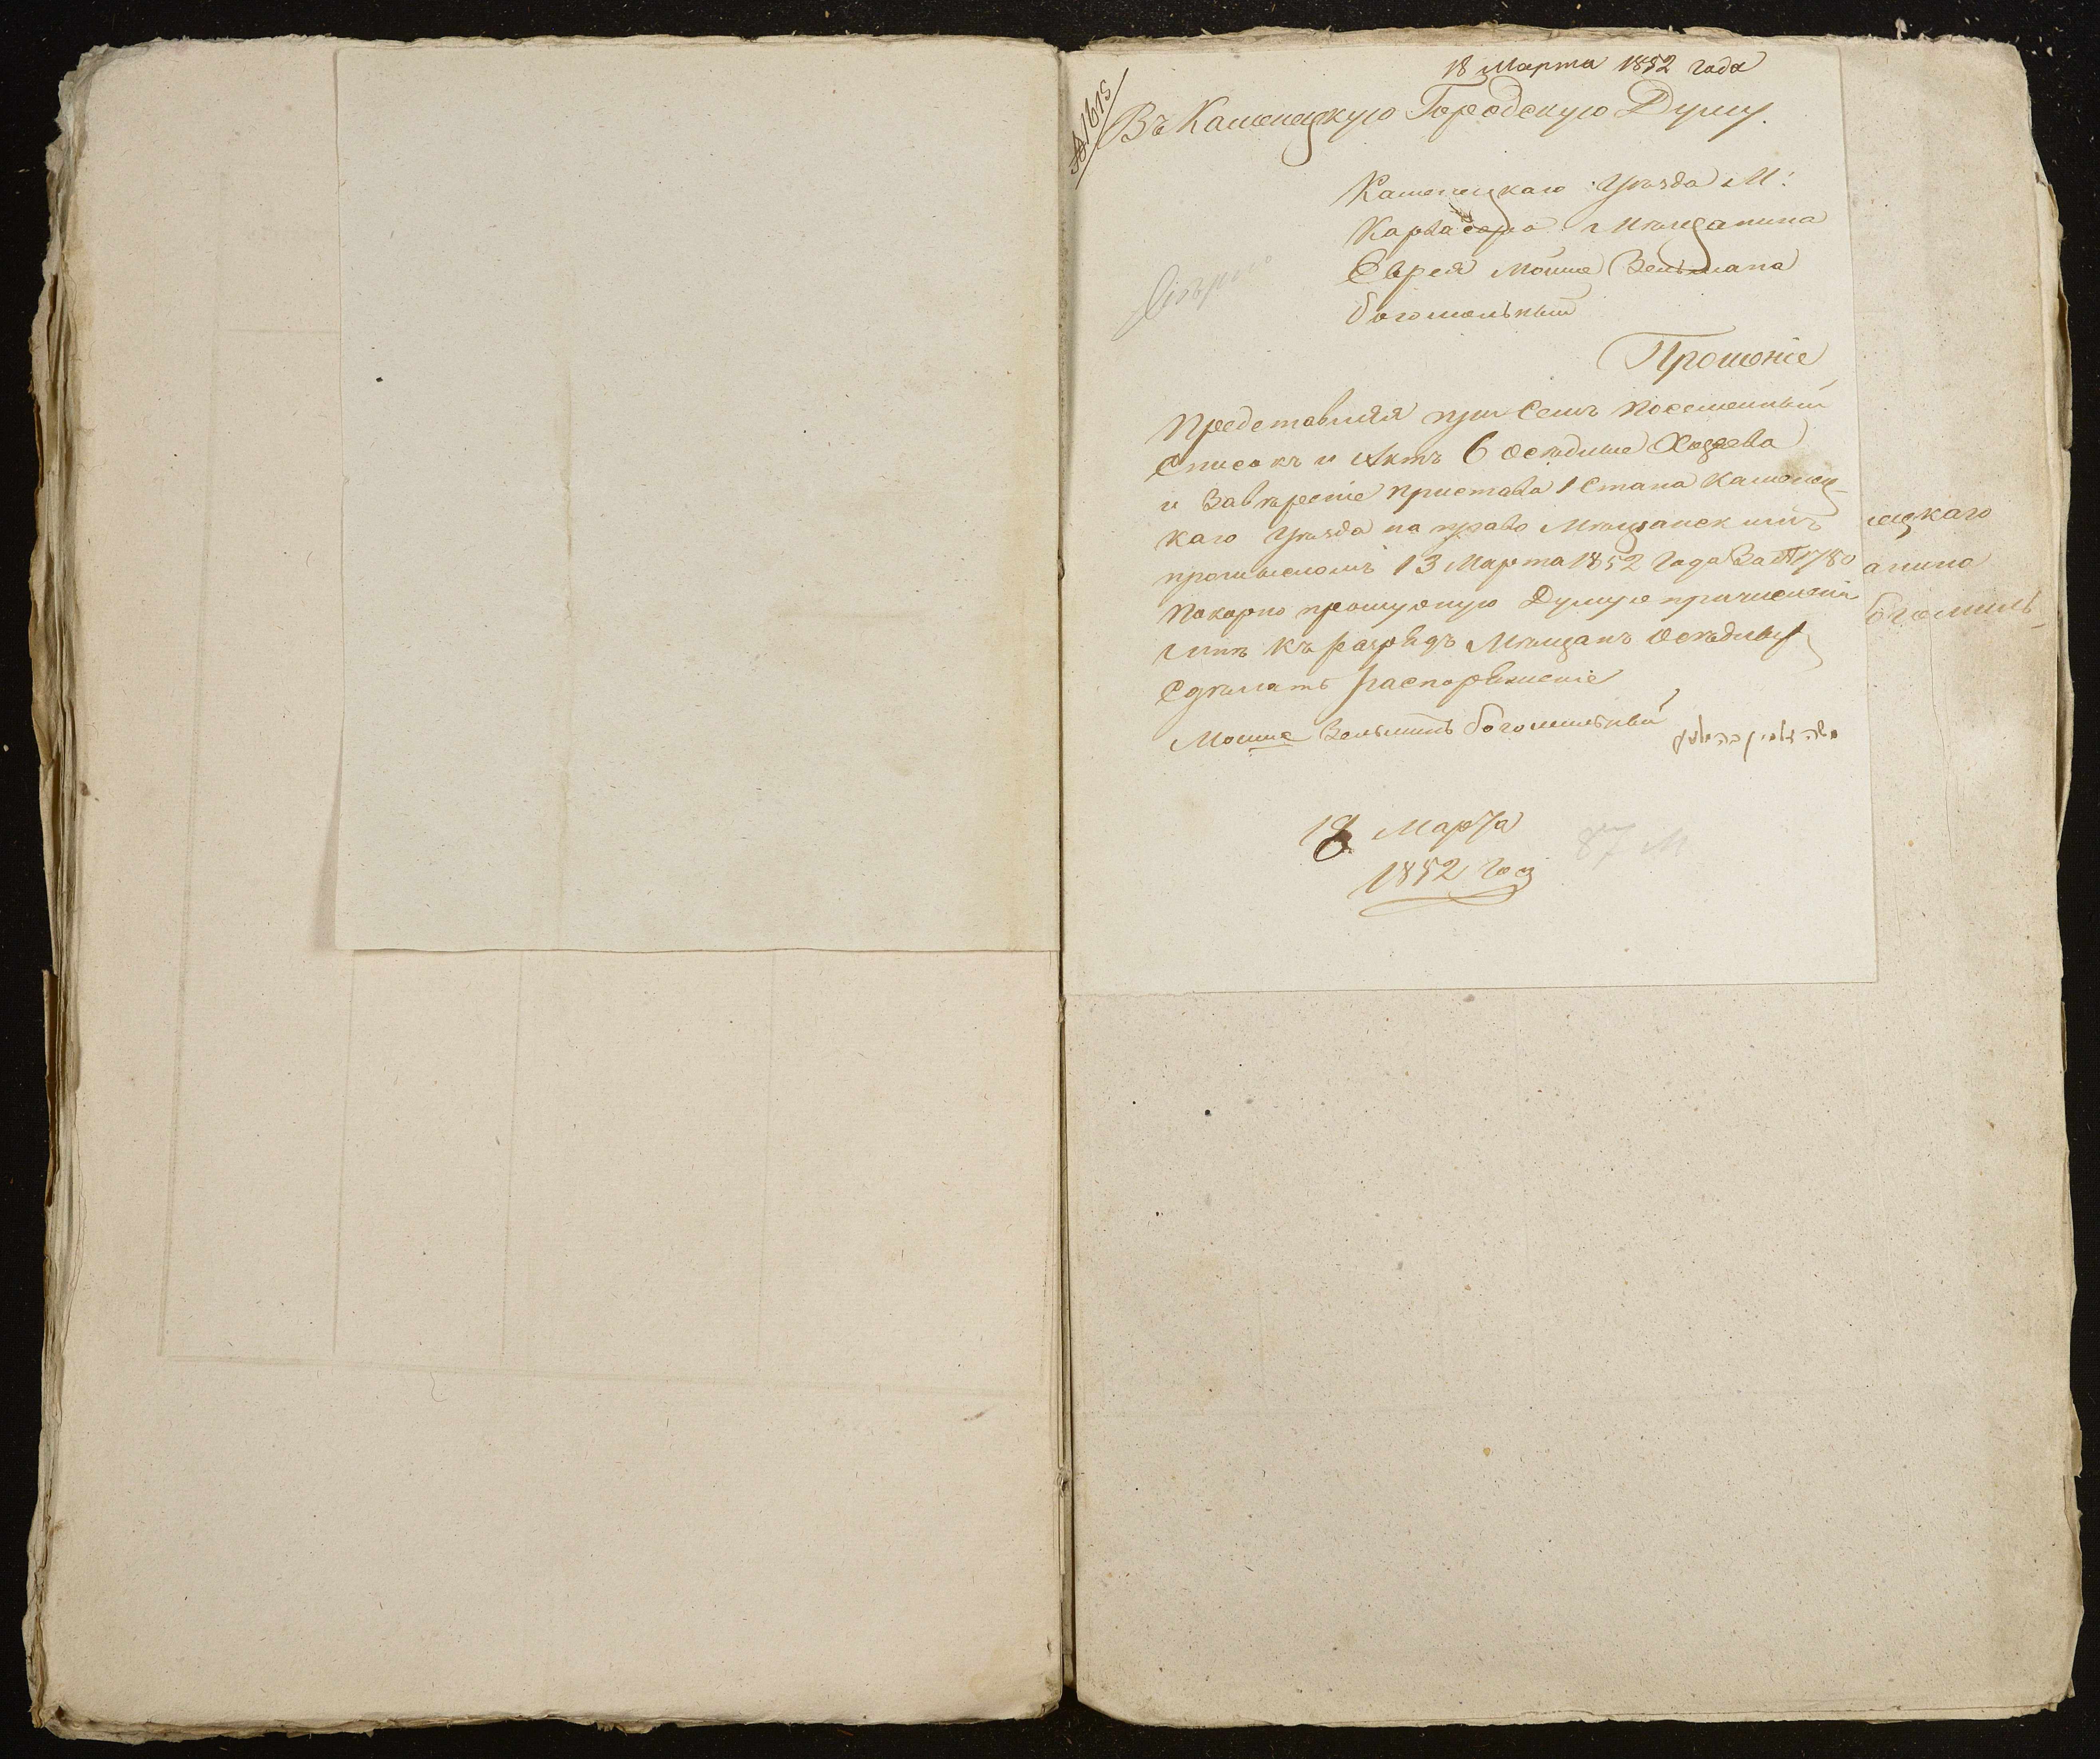 18 Марта 1852 года
№ 1615
Въ Каменецкую Городскую Думу.
Каменецкаго Уѣзда М:
Карвасаро Мѣщанина
Еврея Мошка Зельмана
богомольный
Прошеніе
Представляя при семъ посемейный
Списокъ и Актъ 6 осѣдлые Хозяева
и Завѣреніе пристава 1 Стана Каменец-
каго Уѣзда на право Мѣщанскимъ
промысломъ 13 Марта 1852 года За № 1780
покорно прошу оную Думу о причисленіи
къ разрядъ Мѣщанъ осѣдлыхъ
Сдѣлать распоряженіе
Мошка Зельманъ богомольный
18 Марта
1852 год
87 М
ецкаго
анина
богомиль-